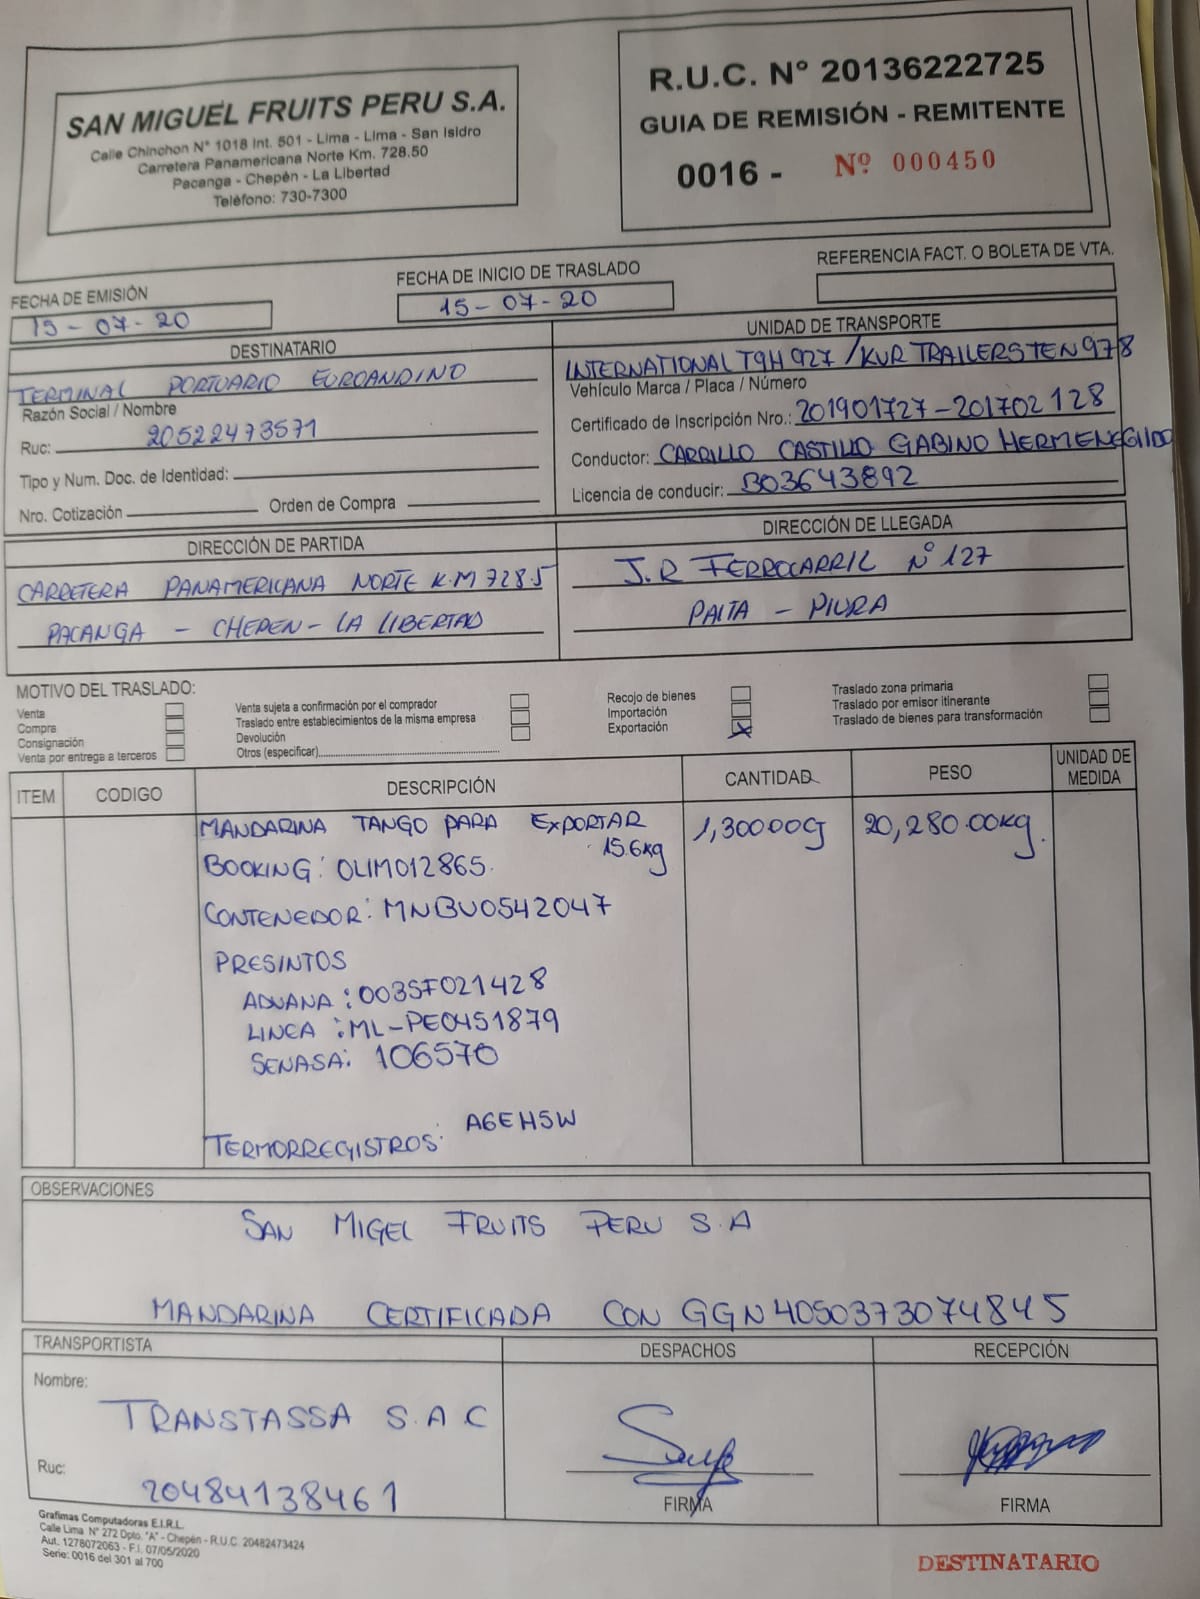 SAN MIGUEL FRUITS PERU S.A.
Calle Chinchon N° 1018 Int. 501 - Lima - Lima - San Isidro
Carretera Panamericana Norte Km. 728.50
Pacanga - Chepén - La Libertad
Teléfono: 730-7300
R.U.C. N° 20136222725
GUIA DE REMISIÓN - REMITENTE
0016 - Nº 000450
FECHA DE EMISIÓN
15-07-20
FECHA DE INICIO DE TRASLADO
15-07-20
REFERENCIA FACT. O BOLETA DE VTA.
DESTINATARIO
TERMINAL PORTUARIO EUROANDINO
Razón Social / Nombre
Ruc: 20522473571
Tipo y Num. Doc. de Identidad:
Nro. Cotización Orden de Compra
UNIDAD DE TRANSPORTE
INTERNATIONAL T9H 927 / KUR TRAILERS TEN 978
Vehículo Marca / Placa / Número
Certificado de Inscripción Nro.: 201901727-201702128
Conductor: CARRILLO CASTILLO GABINO HERMENEGILDO
Licencia de conducir: B03643892
DIRECCIÓN DE PARTIDA
CARRETERA PANAMERICANA NORTE K.M 728.5
PACANGA - CHEPEN - LA LIBERTAD
DIRECCIÓN DE LLEGADA
J.R FERROCARRIL N° 127
PAITA - PIURA
MOTIVO DEL TRASLADO:
Venta
Compra
Consignación
Venta por entrega a terceros
Venta sujeta a confirmación por el comprador
Traslado entre establecimientos de la misma empresa
Devolución
Otros (especificar)
Recojo de bienes
Importación
Exportación X
Traslado zona primaria
Traslado por emisor itinerante
Traslado de bienes para transformación
ITEM CODIGO DESCRIPCIÓN CANTIDAD PESO UNIDAD DE MEDIDA
MANDARINA TANGO PARA EXPORTAR 1,300.00 20,280.00kg.
15.6kg
BOOKING: OLIM012865.
CONTENEDOR: MNBU0542047
PRESINTOS
ADUANA: 003SF021428
LINEA: ML-PE0451879
SENASA: 106570
TERMORREGISTROS: A6EH5W
OBSERVACIONES
SAN MIGEL FRUITS PERU S.A
MANDARINA CERTIFICADA CON GGN 4050373074845
TRANSPORTISTA
Nombre:
TRANSTASSA S.A.C
Ruc:
20484138461
DESPACHOS
FIRMA
RECEPCIÓN
FIRMA
Grafimas Computadoras E.I.R.L.
Calle Lima N° 272 Dpto. "A" - Chepén - R.U.C. 20482473424
Aut. 1278072063 - F.I. 07/05/2020
Serie: 0016 del 301 al 700
DESTINATARIO